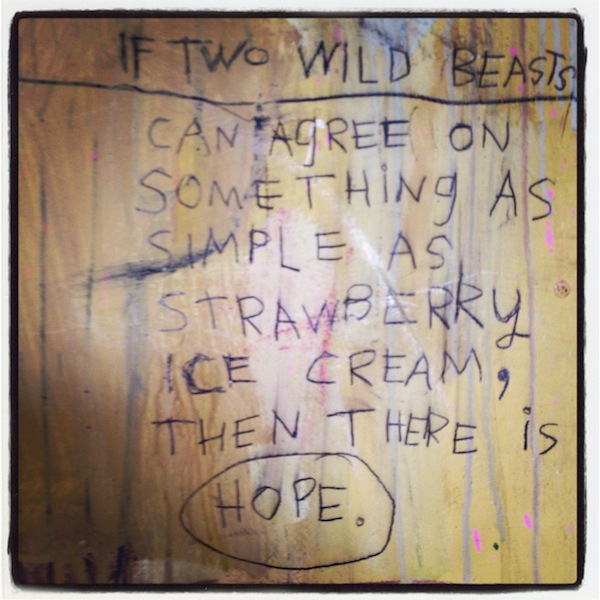 IF TWO WILD BEASTS
CAN AGREE ON
SOMETHiNg AS
SIMPLE AS
STRAWBERRY
ICE CREAM,
THEN THERE is
HOPE.